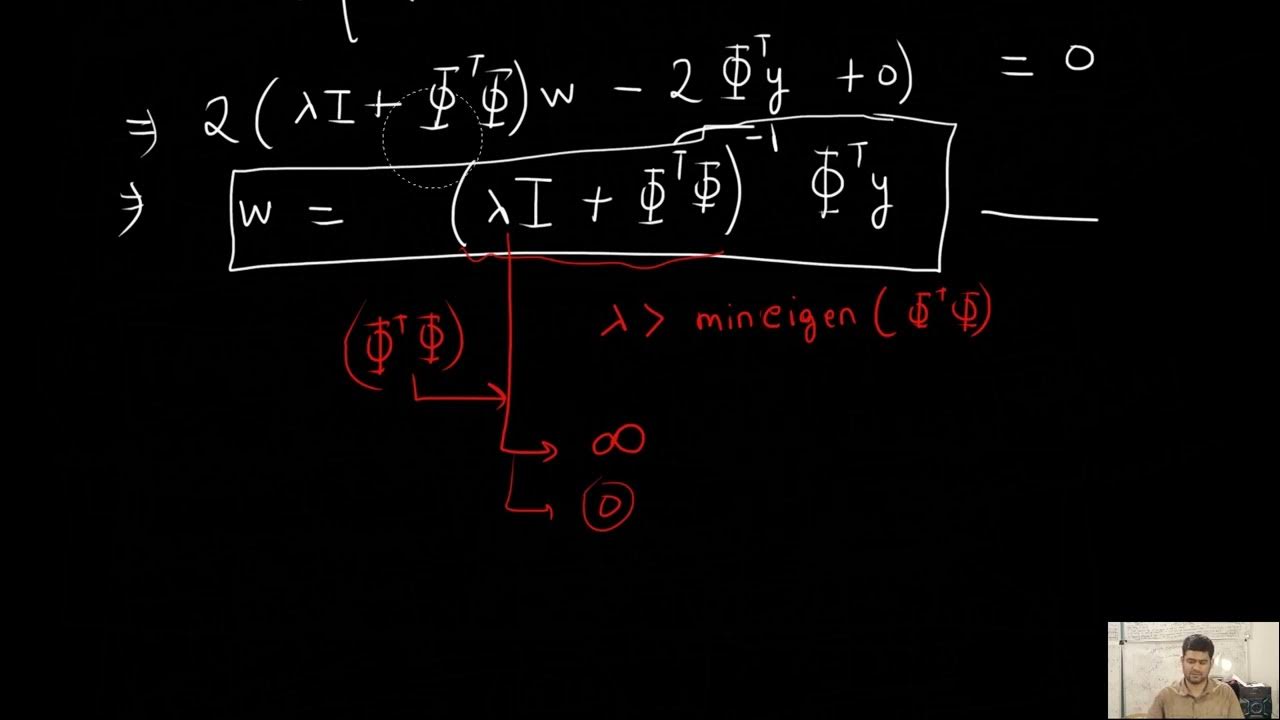 ⇒ 2(λI + ΦᵀΦ)w − 2Φᵀy + 0) = 0
⇒ w = (λI + ΦᵀΦ)⁻¹ Φᵀy
λ > mineigen(ΦᵀΦ)
(ΦᵀΦ)
∞
0